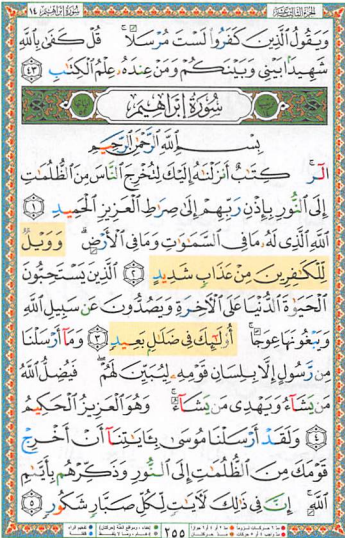 الجزء الثالث عشر سورة إبراهيم ١٤
وَيَقُولُ ٱلَّذِينَ كَفَرُواْ لَسْتَ مُرْسَلًاۚ قُلْ كَفَىٰ بِٱللَّهِ
شَهِيدَۢا بَيْنِى وَبَيْنَكُمْ وَمَنْ عِندَهُۥ عِلْمُ ٱلْكِتَٰبِ ٤٣
سُورَةُ إِبْرَاهِيم
بِسْمِ ٱللَّهِ ٱلرَّحْمَٰنِ ٱلرَّحِيمِ
الٓرۚ كِتَٰبٌ أَنزَلْنَٰهُ إِلَيْكَ لِتُخْرِجَ ٱلنَّاسَ مِنَ ٱلظُّلُمَٰتِ
إِلَى ٱلنُّورِ بِإِذْنِ رَبِّهِمْ إِلَىٰ صِرَٰطِ ٱلْعَزِيزِ ٱلْحَمِيدِ ١
ٱللَّهِ ٱلَّذِى لَهُۥ مَا فِى ٱلسَّمَٰوَٰتِ وَمَا فِى ٱلْأَرْضِۗ وَوَيْلٌ
لِّلْكَٰفِرِينَ مِنْ عَذَابٍ شَدِيدٍ ٢ ٱلَّذِينَ يَسْتَحِبُّونَ
ٱلْحَيَوٰةَ ٱلدُّنْيَا عَلَى ٱلْءَاخِرَةِ وَيَصُدُّونَ عَن سَبِيلِ ٱللَّهِ
وَيَبْغُونَهَا عِوَجًاۚ أُوْلَٰٓئِكَ فِى ضَلَٰلِۭ بَعِيدٍ ٣ وَمَآ أَرْسَلْنَا
مِن رَّسُولٍ إِلَّا بِلِسَانِ قَوْمِهِۦ لِيُبَيِّنَ لَهُمْۖ فَيُضِلُّ ٱللَّهُ
مَن يَشَآءُ وَيَهْدِى مَن يَشَآءُۚ وَهُوَ ٱلْعَزِيزُ ٱلْحَكِيمُ
٤ وَلَقَدْ أَرْسَلْنَا مُوسَىٰ بِـَٔايَٰتِنَآ أَنْ أَخْرِجْ
قَوْمَكَ مِنَ ٱلظُّلُمَٰتِ إِلَى ٱلنُّورِ وَذَكِّرْهُم بِأَيَّىٰمِ
ٱللَّهِۚ إِنَّ فِى ذَٰلِكَ لَءَايَٰتٍ لِّكُلِّ صَبَّارٍ شَكُورٍ ٥
٢٥٥